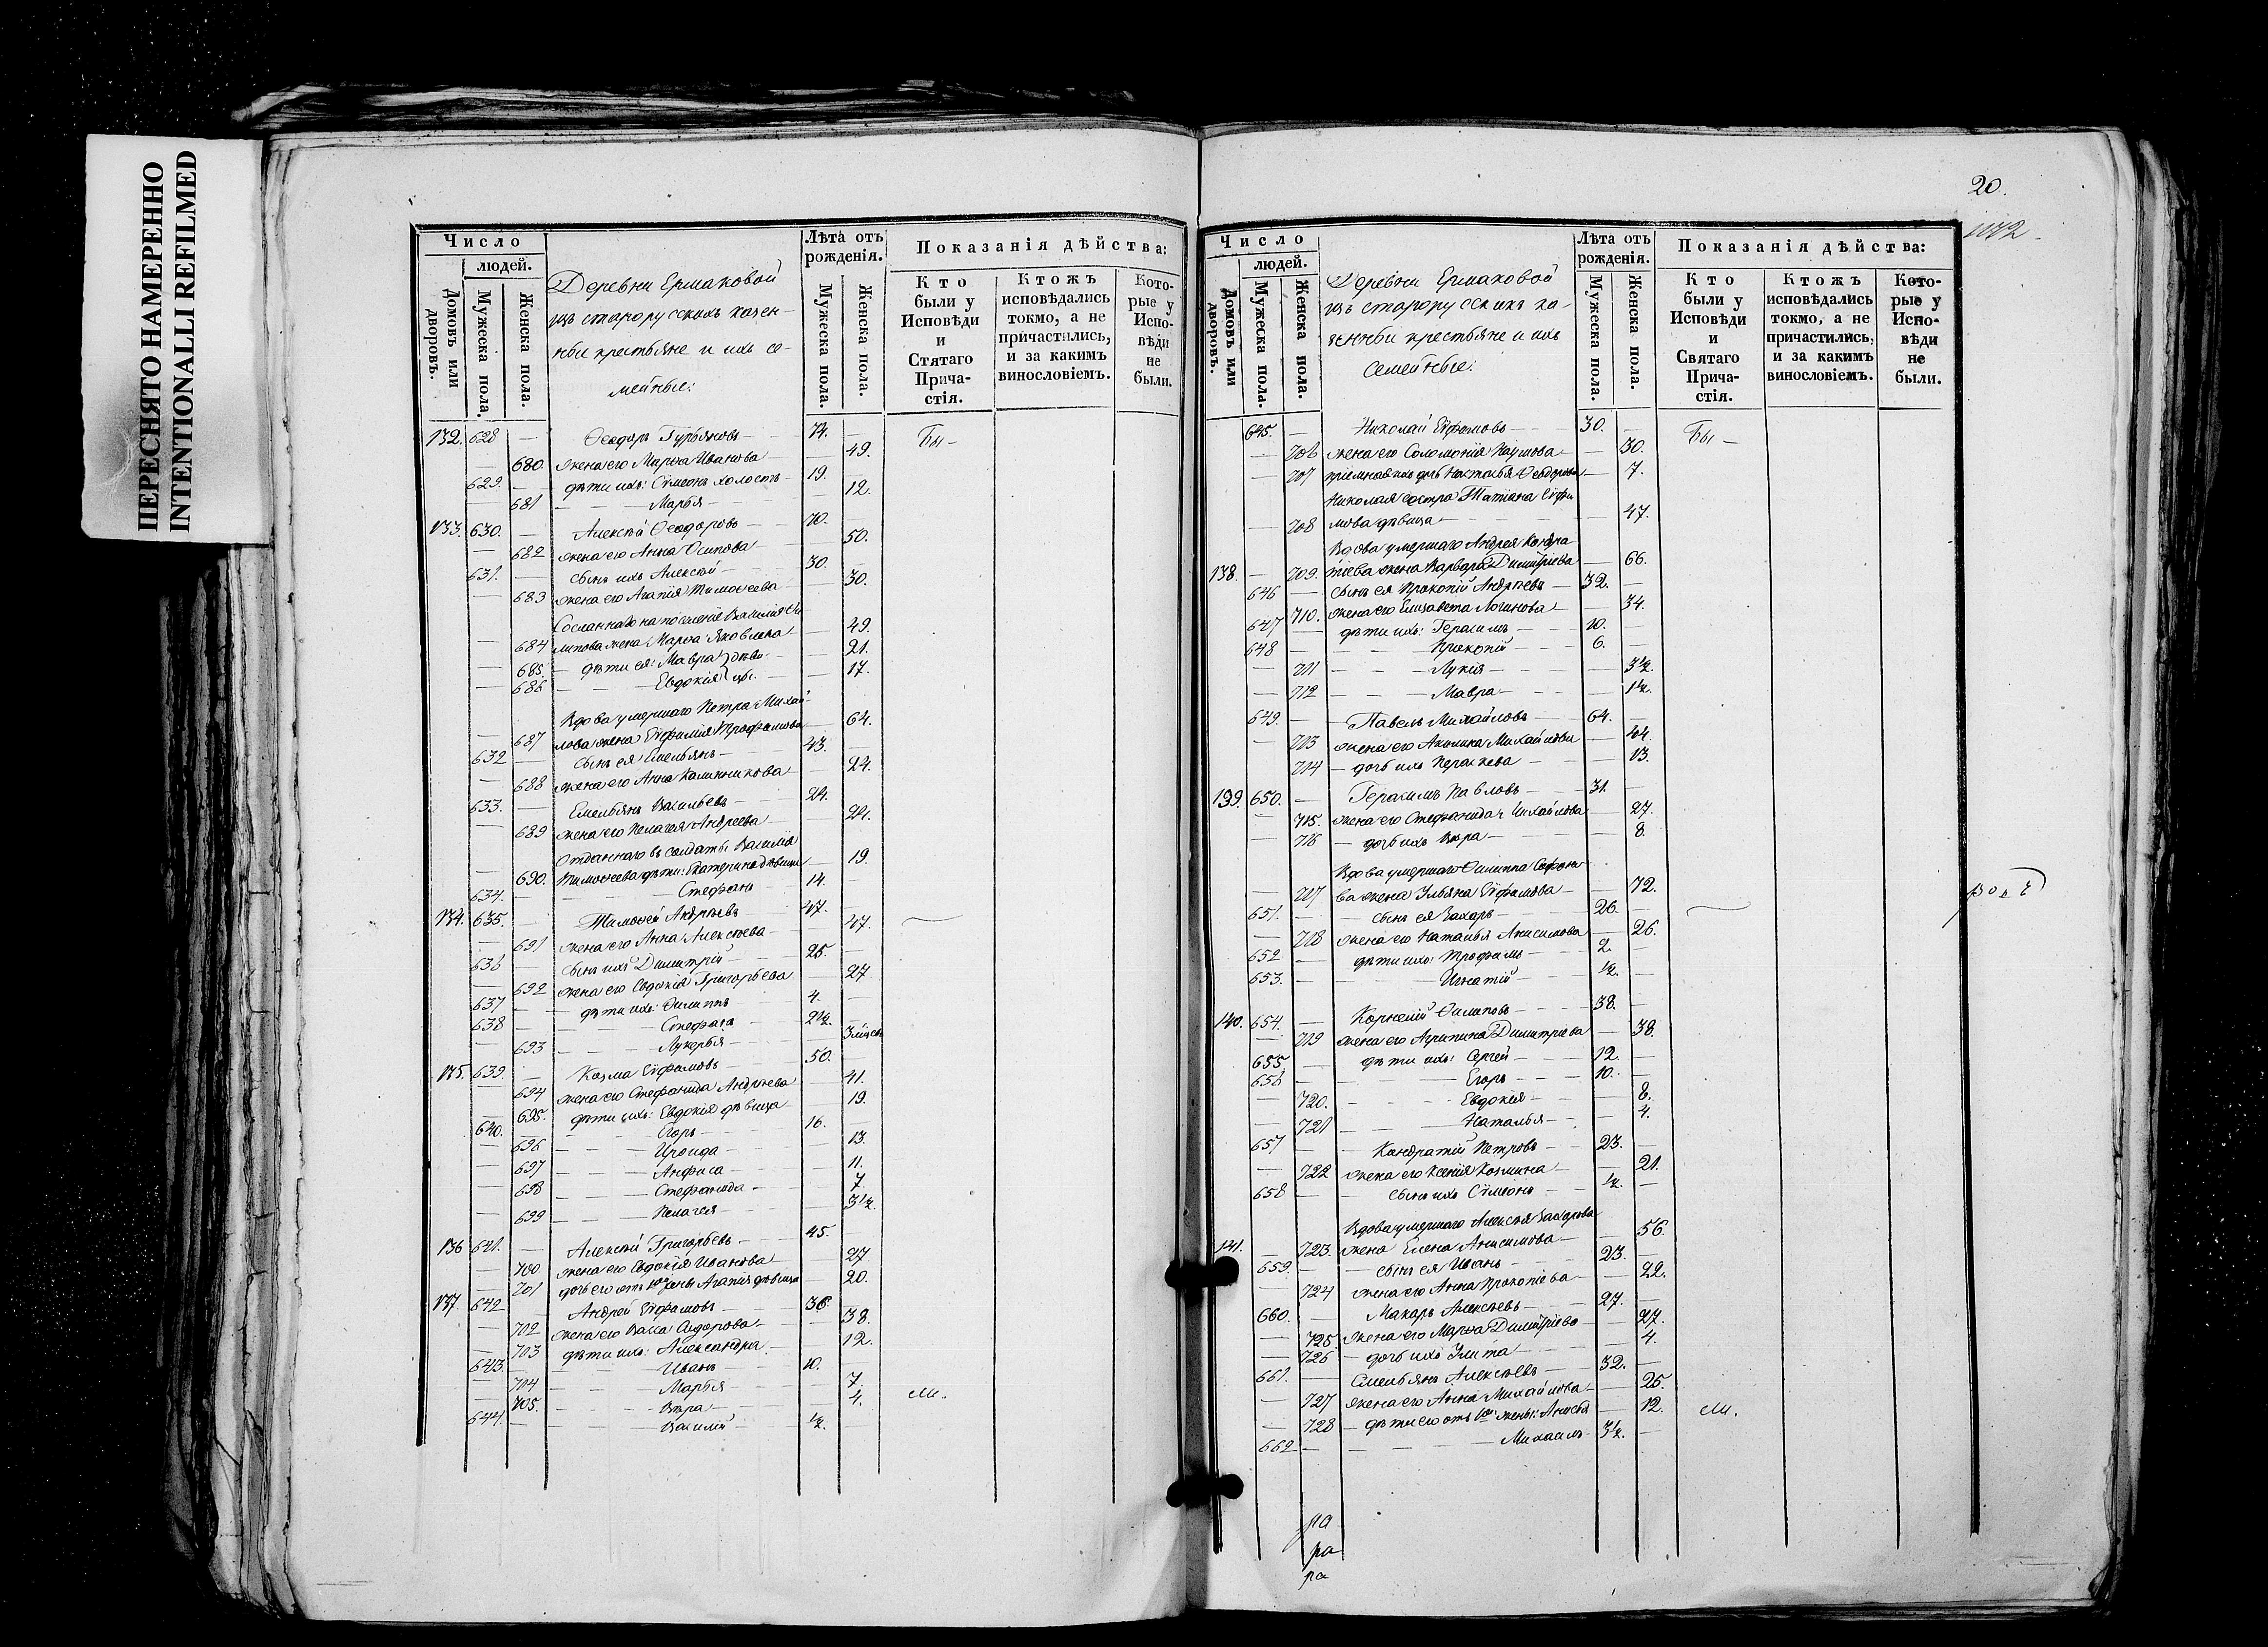 ПЕРЕСНЯТО НАМЕРЕННО
INTENTIONALLI REFILMED
Число
людей.
Домовъ или дворовъ.
Мужеска пола.
Женска пола.
Деревни Ермаковой
изъ старорусскихъ казен-
ныи крестьяне и ихъ се-
мейные:
Лѣта отъ рожденія.
Мужеска пола.
Женска пола.
Показанія дѣйства:
Кто были у Исповѣди и Стятаго Прича-стія.
Ктожъ исповѣдались токмо, а не причастились, и за какимъ винословіемъ.
Кото-рые у Испо-вѣди не были.
132. 628 — Ѳеодоръ Гурьяновъ — 74. — Бы —
— 680. жена его Марѳа Иванова — 49.
629. — дѣти ихъ: Сѵмеонъ холостъ — 19.
681 — Марья — 12.
133. 630. — Алексѣй Ѳеодоровъ — 70.
— 682 жена его Анна Осипова — 50.
631. — сынъ ихъ Алексѣй — 30.
— 683 жена его Агапія Тимоѳеева — 30.
Сосланнаго на поселеніе Василія Фи
— 684 липова жена Марѳа Яковлева — 49.
— 685. — дѣти ея: Мавра } дѣви- — 21.
— 686 — Евдокія } цы. — 17.
Вдова умершаго Петра Михай-
— 687 лова жена Евфимія Трофимова — 64.
632 — сынъ ея Емельянъ — 43.
— 688 жена его Анна Калинникова — 24.
633. — Емельянъ Васильевъ — 24.
— 689 жена его Пелагея Андреева — 24.
Отданнаго въ солдаты Василія
— 690. Тимоѳеева дѣти: Екатерина дѣвица — 19.
634. — Стефанъ — 14.
134. 635. — Тимоѳей Андреевъ — 47.
— 691 жена его Анна Алексѣева — 47.
636 — сынъ ихъ Димитрій — 25.
— 692 жена его Евдокія Григорьева — 27
637 — дѣти ихъ: Филиппъ — 4.
638 — Стефанъ — 2½.
— 693 — Лукерья — 3 мѣсец
135. 639. — Козма Евфимовъ — 50.
— 694 жена его Стефанида Андреева — 41.
— 695. дѣти ихъ: Евдокія дѣвица — 19.
640. — Егоръ — 16.
— 696 — Ироида — 13.
— 697 — Анфиса — 11.
— 698 — Стефанида — 7
— 699 — Пелагея — 3½.
136 641. — Алексѣй Григорьевъ — 45.
— 700 жена его Евдокія Иванова — 27
— 701 дочь его отъ 1ой жены Агапія дѣвица — 20.
137. 642 — Андрей Евфимовъ — 36.
— 702 жена его Васса Сидорова — 38.
— 703 дѣти ихъ: Александра — 12.
643. — Иванъ — 10.
— 704 — Марья — 7.
— 705. — Вѣра — 4. ли.
644. — Василій — ½.
20.
Число
людей.
Домовъ или дворовъ.
Мужеска пола.
Женска пола.
Деревни Ермаковой
изъ старорусскихъ ка-
зенныи крестьяне и ихъ
семейные:
Лѣта отъ рожденія.
Мужеска пола.
Женска пола.
Показанія дѣйства:
Кто были у Исповѣди и Святаго Прича-стія.
Ктожъ исповѣдались токмо, а не причастились, и за какимъ винословіемъ.
Кото-рые у Испо-вѣди не были.
645. — Николай Евфимовъ — 30. — Бы —
— 706 жена его Соломонія Наумова — 30.
— 707 пріемная ихъ дочь Настасья Ѳеодорова — 7.
Николая сестра Татіана Евфи
— 708 мова дѣвица — 47.
Вдова умершаго Андрея Кондра
138. — 709. тіева жена Варвара Димитріева — 66.
646 — сынъ ея Прокопій Андреевъ — 32. —
— 710. жена его Елизавета Логинова — 34.
647 — дѣти ихъ: Герасимъ — 10. —
648 — Прокопій — 6.
— 711 — Лукія — 3½.
— 712 — Мавра — 1½.
649. — Павелъ Михайловъ — 64. —
— 713 жена его Акилина Михайлова — 44.
— 714 — дочь ихъ Параскева — 13.
139. 650. — Герасимъ Павловъ — 31. —
— 715. жена его Стефанида Михайлова — 27.
— 716 — дочь ихъ Вѣра — 8.
Вдова умершаго Филиппа Софоно
— 717 ва жена Ульяна Евфимова — 72.
651. — сынъ ея Захаръ — 26. —
— 718 жена его Наталья Анисимова — 26.
652 — дѣти ихъ: Трофимъ — 2. —
653. — Игнатій — ½. —
140. 654. — Корнелій Филиповъ — 38. —
— 719 жена его Агрипина Димитріева — 38.
655. — дѣти ихъ: Сергей — 12. —
656 — Егоръ — 10. —
— 720. — Евдокія — 8.
— 721 — Наталья — 4.
657 — Кандратій Петровъ — 23. —
— 722 жена его Ксенія Козмина — 21.
658 — сынъ ихъ Сѵмеонъ — ½. —
Вдова умершаго Алексѣя Захарова
141. — 723. жена Елена Анисимова — 56.
659. — сынъ ея Иванъ — 23. —
— 724 жена его Анна Прокопіева — 22.
660. — Макаръ Алексѣевъ — 27. —
— 725. жена его Марѳа Димитріева — 27.
— 726 — дочь ихъ Улита — 4.
661. — Емельянъ Алексѣевъ — 32. —
— 727 жена его Анна Михайлова — 25.
— 728 — дѣти его отъ 1ой жены: Анисья — 12. ли.
662 — Михаилъ — 3½. —
ра
ра
ра